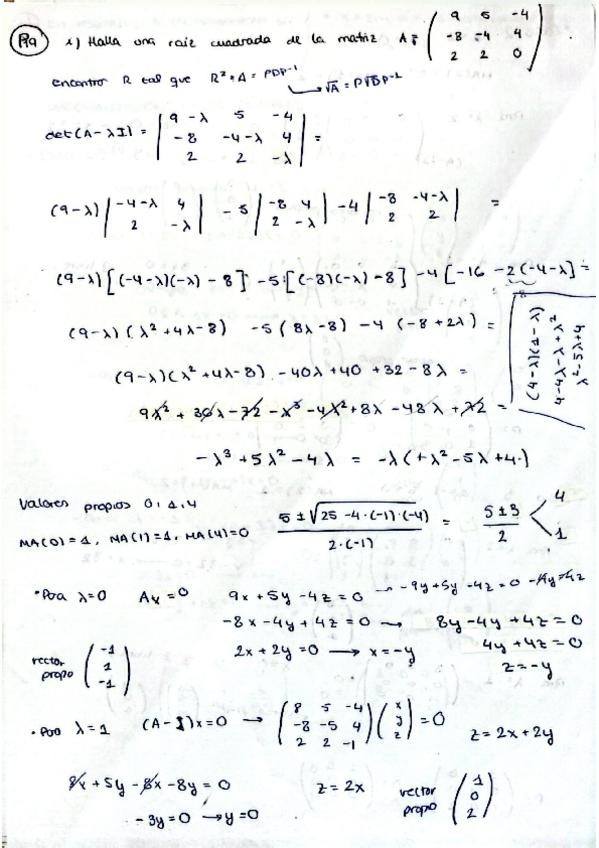 P19 1) Halla una raiz cuadrada de la matriz A = ( 9 5 -4
-8 -4 4
2 2 0 ).
encontrar R tal que R² = A = PDP⁻¹
→ √A = P√D P⁻¹
det(A-λI) = | 9-λ 5 -4
-8 -4-λ 4
2 2 -λ | =
(9-λ) | -4-λ 4
2 -λ | -5 | -8 4
2 -λ | -4 | -8 -4-λ
2 2 | =
(9-λ) [(-4-λ)(-λ) - 8] -5 [(-8)(-λ) - 8] -4 [-16 - 2(-4-λ] =
-8
(9-λ) (λ² + 4λ - 8) -5 (8λ - 8) - 4 (-8 + 2λ) =
(9-λ)(λ² + 4λ - 8) - 40λ + 40 + 32 - 8λ =
9λ² + 36λ - 72 - λ³ - 4λ² + 8λ - 48λ + 72 =
(4-λ)(1-λ)
4-4λ-λ+λ²
λ²-5λ+4
-λ³ + 5λ² - 4λ = -λ(+λ² - 5λ + 4)
Valores propios 0, 1, 4
MA(0)=1, MA(1)=1, MA(4)=0
5 ± √25 - 4·(-1)·(-4) / 2·(-1) = 5 ± 3 / 2 < 4
1
• Para λ=0 Ax=0 9x + 5y - 4z = 0 → -9y + 5y - 4z = 0 -4y = 4z
-8x - 4y + 4z = 0 → 8y - 4y + 4z = 0
2x + 2y = 0 → x = -y 4y + 4z = 0
z = -y
vector propio ( -1
1
-1 )
• Para λ=1 (A-I)x=0 → ( 8 5 -4
-8 -5 4
2 2 -1 ) ( x
y
z ) = 0 z = 2x + 2y
8x + 5y - 8x - 8y = 0 z = 2x
-3y = 0 → y = 0
vector propio ( 1
0
2 )